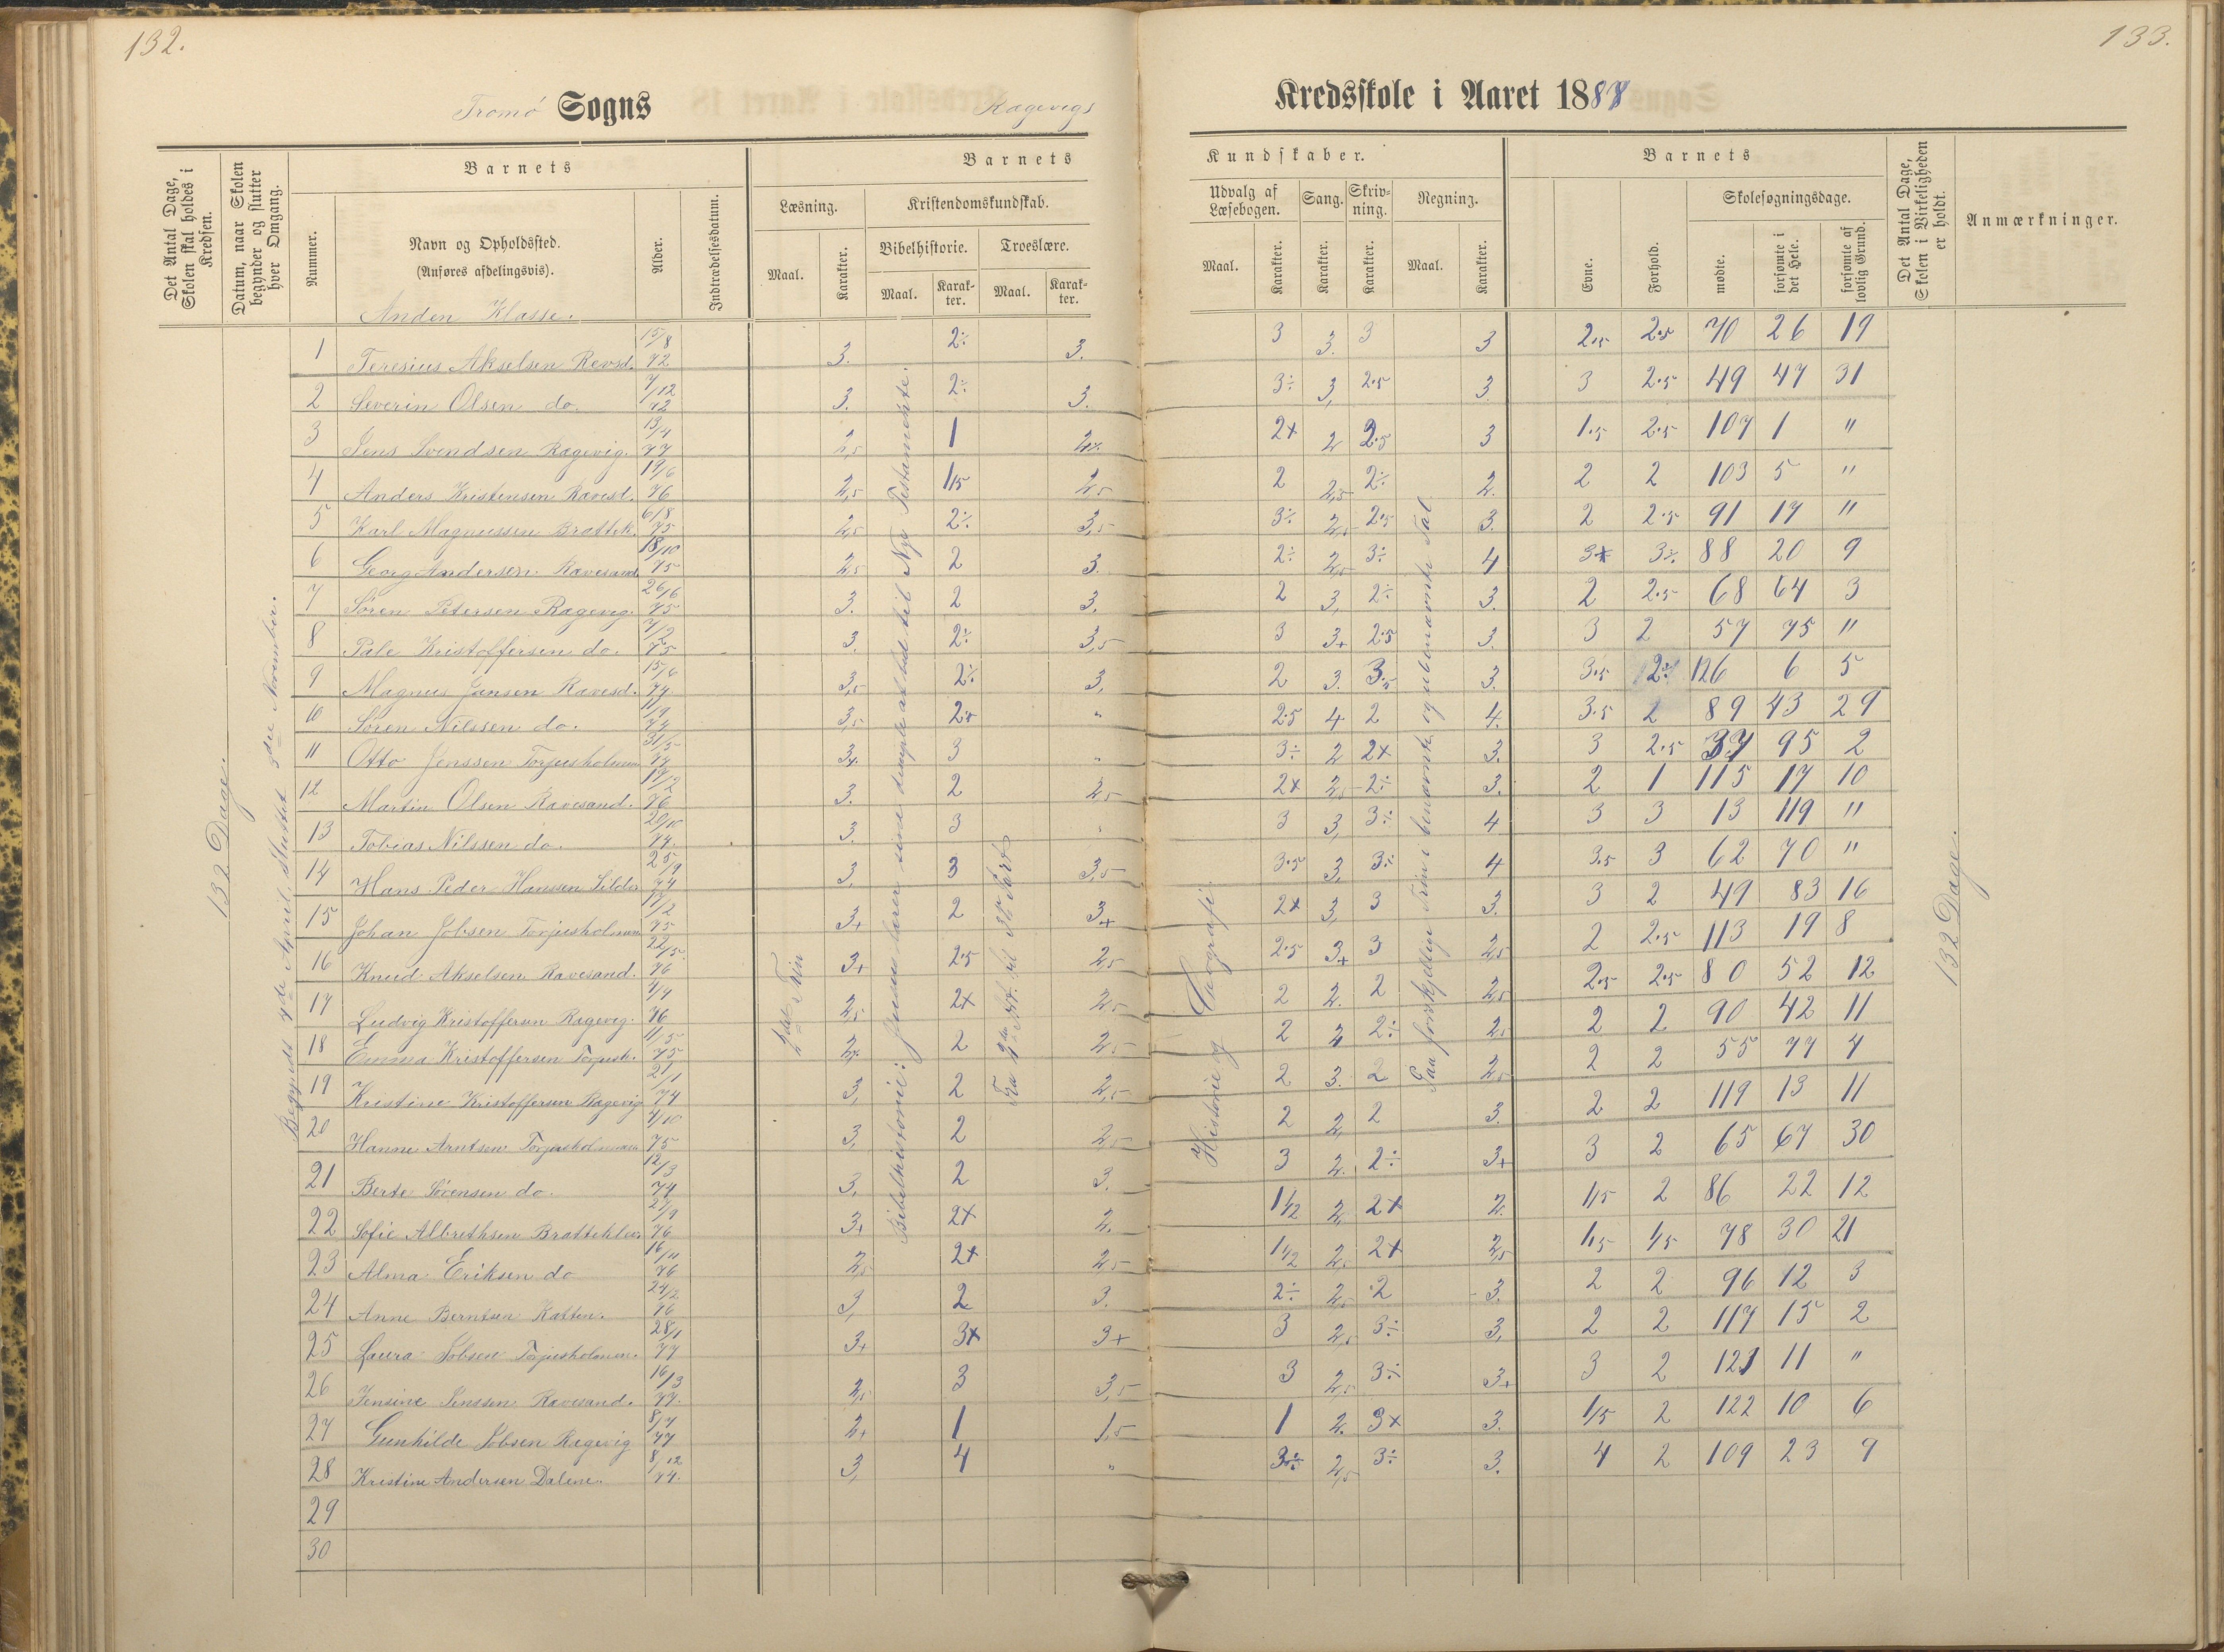 132.
133.
Tromø Sogns
Ragevigs
Kredsskole i Aaret 1888
Det Antal Dage, Skolen skal holdes i Kredsen.
Datum, naar Skolen begynder og slutter hver Omgang.
Barnets
Nummer.
Navn og Opholdssted.
(Anføres afdelingsvis).
Alder.
Indtrædelsesdatum.
Barnets
Læsning.
Maal.
Karakter.
Kristendomskundskab.
Bibelhistorie.
Maal.
Karakter.
Troeslære.
Maal.
Karakter.
Kundskaber.
Udvalg af Læsebogen.
Maal.
Karakter.
Sang.
Karakter.
Skrivning.
Karakter.
Regning.
Maal.
Karakter.
Barnets
Evne.
Forhold.
Skolesøgningsdage.
mødte.
forsømte i det Hele.
forsømte af lovlig Grund.
Det Antal Dage, Skolen i Virkeligheden er holdt.
Anmærkninger.
Anden Klasse.
1 Teresius Akselsen Revsd. 15/8 72 3. 2÷ 3. 3 3. 3 3 2.5 2.5 70 26 19
2 Severin Olsen do. 7/12 72 3. 2÷ 3. 3÷ 3, 2.5 3. 3 2.5 49 47 31
3 Jens Svendsen Ragevig. 13/4 77 2,5 1 2÷ 2+ 2 2.5 3 1.5 2.5 107 1 "
4 Anders Kristensen Ravesd. 19/6 76 2,5 1,5 2,5 2 2,5 2÷ 2. 2 2 103 5 "
5 Karl Magnussen Brattek. 6/8 75 2,5 2÷ 3,5 3÷ 2,5 2.5 3. 2 2.5 91 17 "
6 Georg Andersen Ravesand 18/10 75 2,5 2 3. 2÷ 2,5 3÷ 4 3+ 3÷ 88 20 9
7 Søren Petersen Ragevig. 26/6 75 3. 2 3, 2 3, 2÷ 3. 2 2.5 68 64 3
8 Pale Kristoffersen do. 7/2 75 3. 2÷ 3,5 3 3+ 2.5 3. 3 2 57 75 "
9 Magnus Jansen Ravesd. 15/6 74 3,5 2÷ 3, 2 3. 3.5 3. 3.5 2÷ 126 6 5
10 Søren Nilssen do. 11/9 74 3,5 2.5 " 2.5 4 2 4. 3.5 2 89 43 29
11 Otto Jenssen Torjusholmen 31/5 74 3÷ 3 " 3÷ 2 2+ 3. 3 2.5 37 95 2
12 Martin Olsen Ravesand. 19/2 76 3. 2 2,5 2+ 2,5 2÷ 3. 2 1 115 17 10
13 Tobias Nilssen do. 20/10 74. 3. 3 " 3 3, 3÷ 4 3 3 13 119 "
14 Hans Peder Hanssen Silder 25/9 74 3, 3 3,5 3.5 3, 3÷ 4 3.5 3 62 70 "
15 Johan Jobsen Torjusholmen 17/2 75 3+ 2 3+ 2+ 3, 3 3. 3 2 49 83 16
16 Knud Akselsen Ravesand. 22/5 76 3+ 2.5 2,5 2.5 3+ 3 2,5 2 2.5 113 19 8
17 Ludvig Kristoffersen Ragevig. 4/7 76 2,5 2+ 2,5 2 2. 2 2,5 2.5 2.5 80 52 12
18 Emma Kristoffersen Torjush. 11/5 75 2÷ 2 2,5 2 2 2÷ 2,5 2 2 90 42 11
19 Kristine Kristoffersen Ragevig 21/1 74 3, 2 2,5 2 3. 2 2,5 2 2 55 77 7
20 Hanne Arntsen Torjusholmen 4/10 75 3, 2 2,5 2 2, 2 3. 2 2 119 13 11
21 Berte Sørensen do. 12/3 74 3, 2 3. 3 2. 2÷ 3+ 3 2 65 67 30
22 Sofie Albrethsen Bratteklev. 27/9 76 3+ 2+ 2. 1 1/2 2, 2+ 2. 1,5 2 86 22 12
23 Alma Eriksen do 16/11 76 2,5 2+ 2,5 1 1/2 2,5 2+ 2,5 1,5 1,5 78 30 21
24 Anne Berntsen Katten. 24/2 76 3, 2 3. 2÷ 2,5 2 3. 2 2 96 12 3
25 Laura Jobsen Torjusholmen. 28/1 77 3+ 3+ 3+ 3 2,5 3÷ 3, 2 2 117 15 2
26 Jensine Jenssen Ravesand. 16/3 77. 2,5 3 3,5 3 2,5 3÷ 3+ 3 2 121 11 "
27 Gunhilde Jobsen Ragevig 8/7 77 2+ 1 1,5 1 2. 3+ 3. 1,5 2 122 10 6
28 Kristine Andersen Dalene. 8/12 74. 3, 4 " 3÷ 2,5 3÷ 3. 4 2 109 23 9
29
30
132 Dage.
Begyndt 9de April. Sluttet 3die November.
2det Trin
Bibelhistorie: Jesum lærer sine disciple at bed til Nye Testamente.
Fra 2den Art. til 3die Part
Historie og Geografi.
Paa forskjellige Trin i benævnte og ubenævnte Tal
132 Dage.